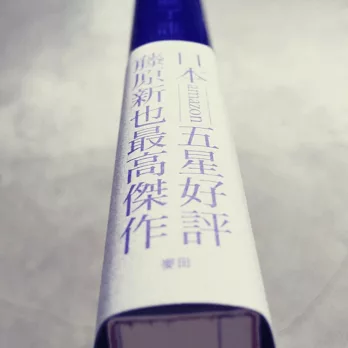 日本amazon五星好評
藤原新也最高傑作
麥田